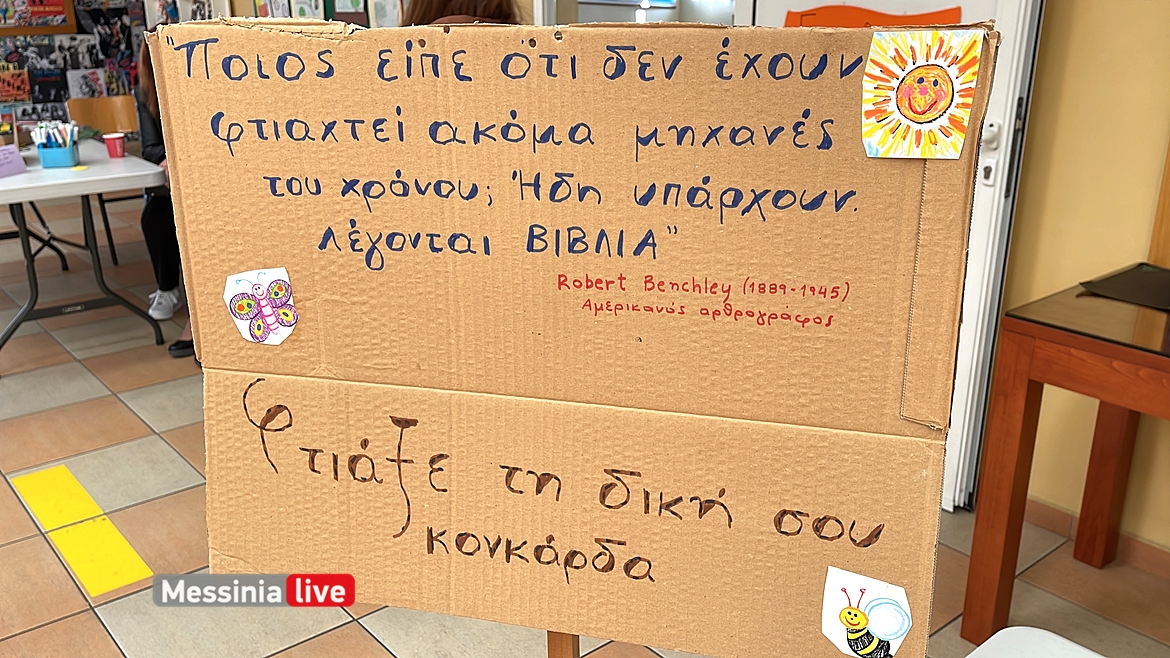 "Ποιος είπε ότι δεν έχουν
φτιαχτεί ακόμα μηχανές
του χρόνου; Ήδη υπάρχουν.
λέγονται ΒΙΒΛΙΑ"
Robert Benchley (1889-1945)
Αμερικανός αρθρογράφος
Φτιάξε τη δική σου
κονκάρδα
Messinia live